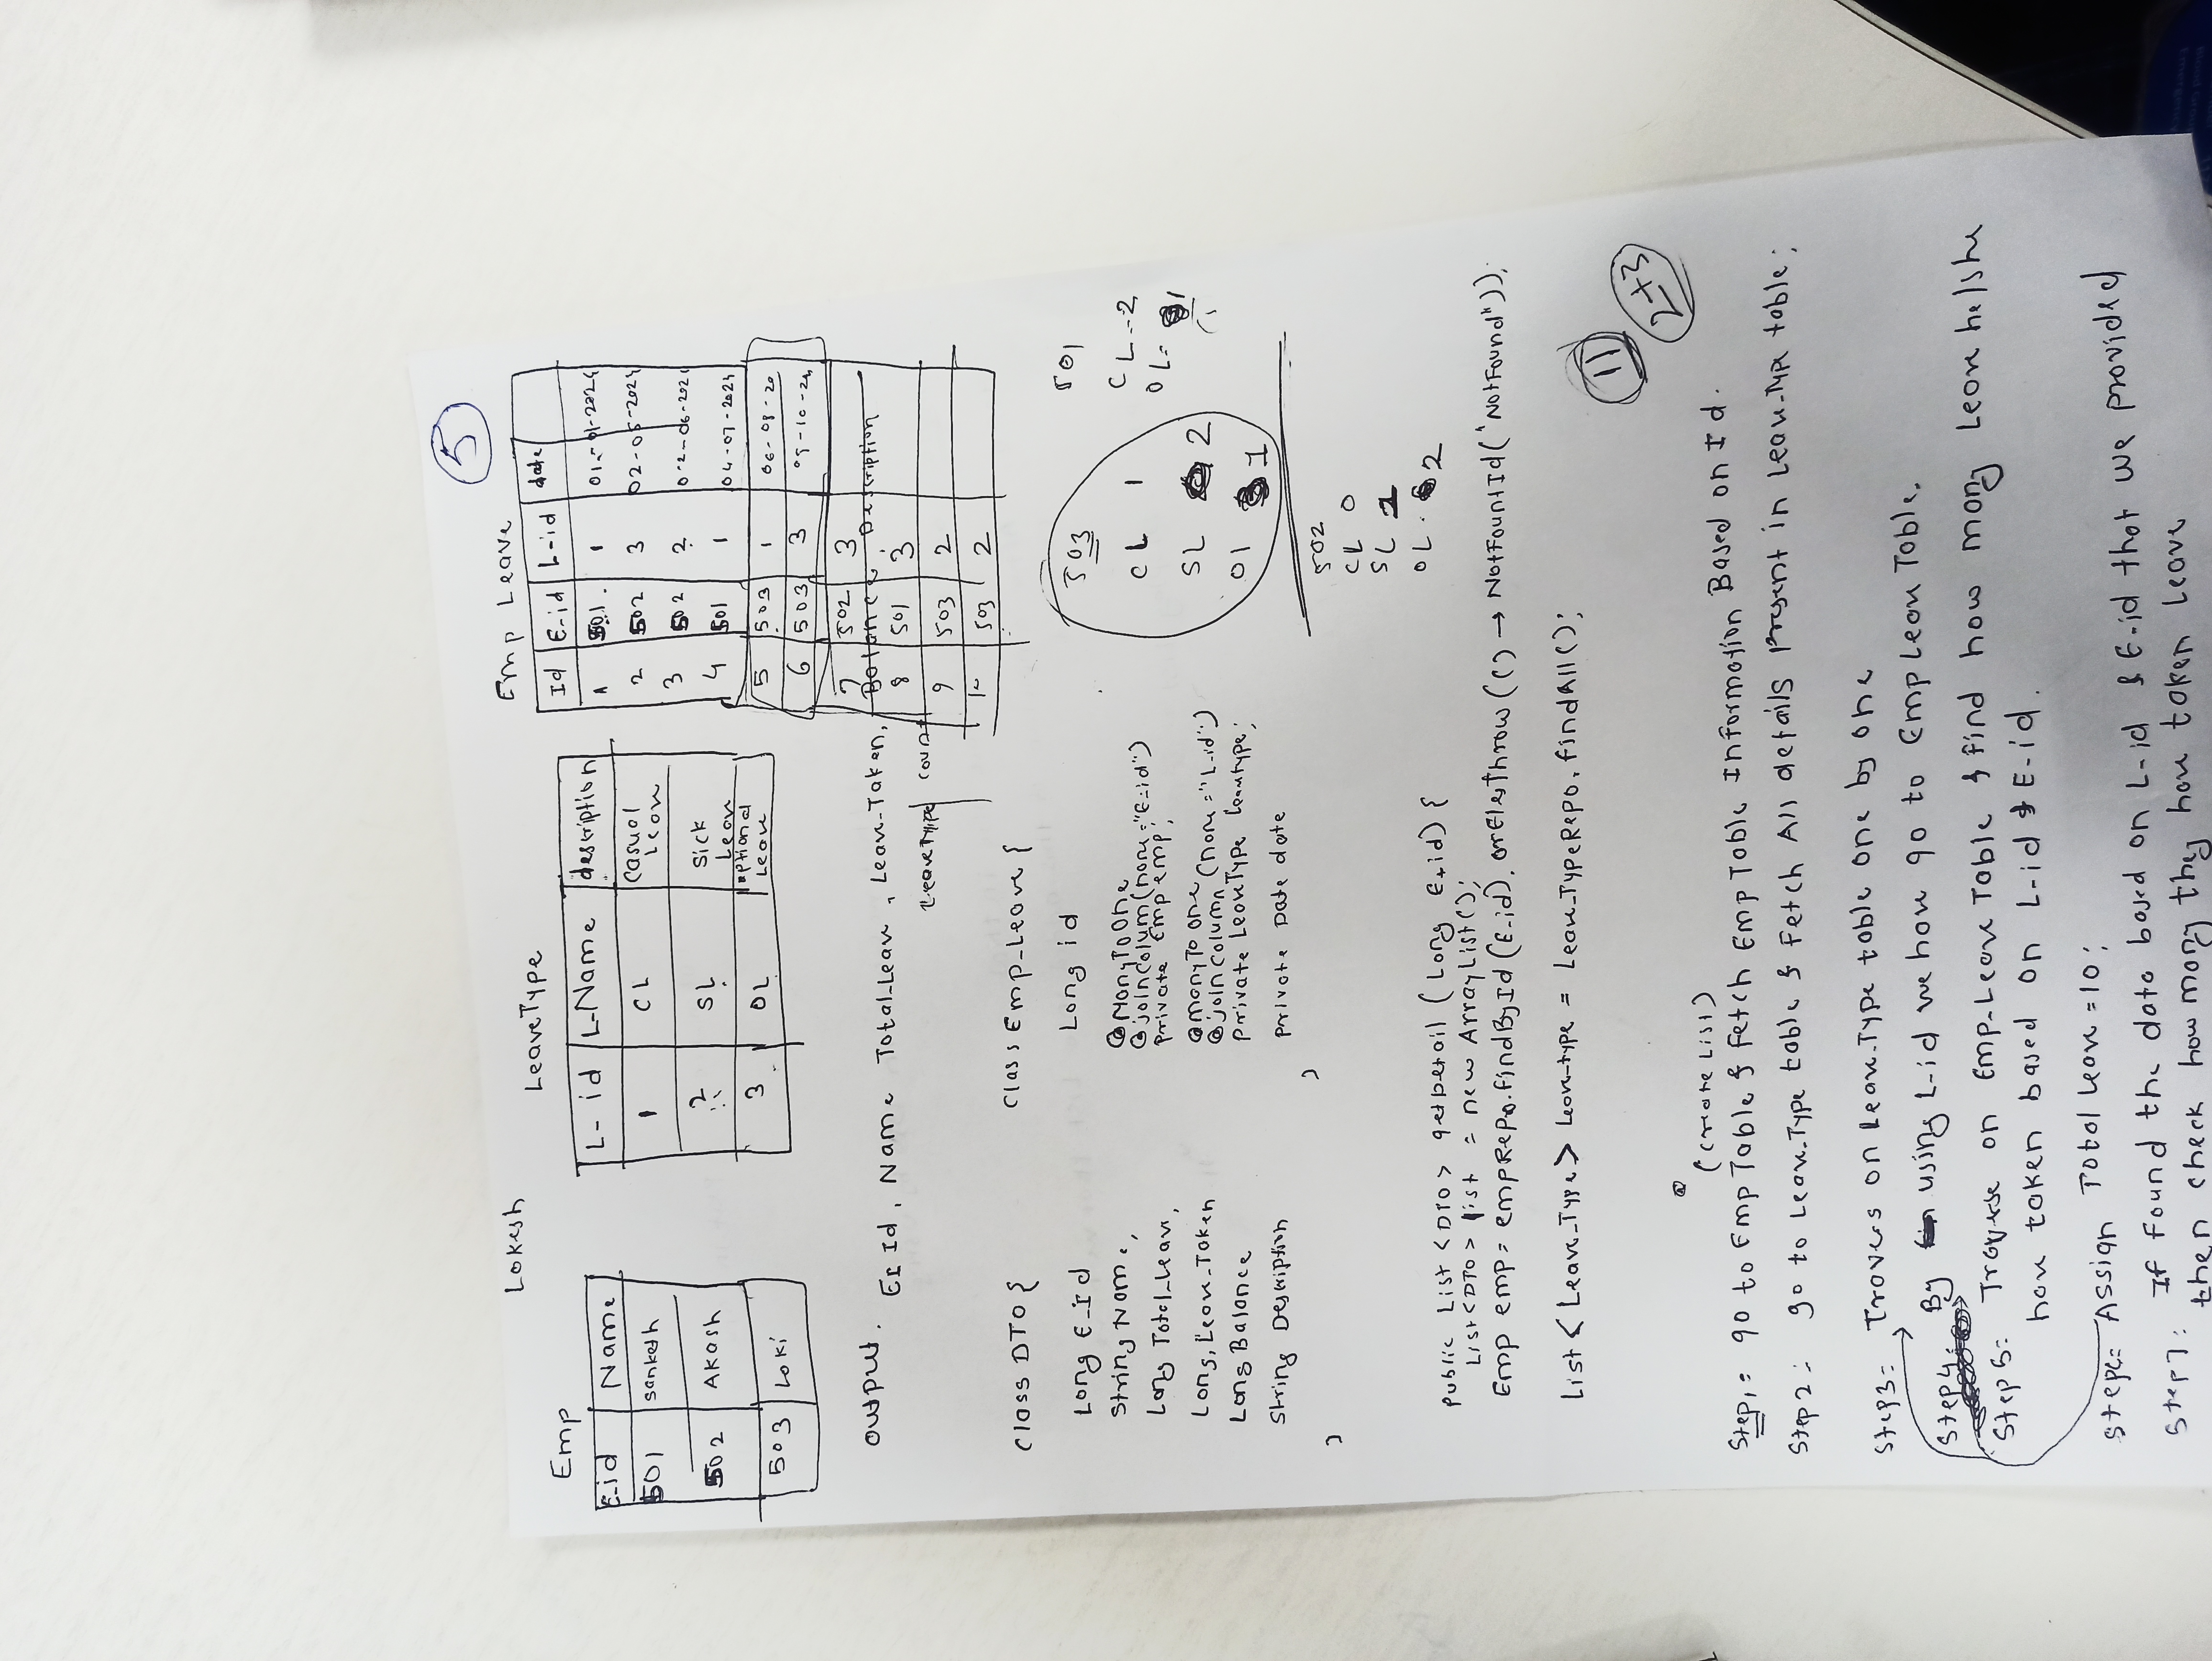 5
Lokesh
Emp
E-id Name
501 Sanketh
502 Akash
503 Loki
LeaveType
L-id L-Name description
1 CL Casual Leave
2 SL Sick Leave
3 OL optional Leave
Emp Leave
Id E-id L-id date
1 501 1 01-01-2024
2 502 3 02-05-2024
3 502 2 02-06-2024
4 501 1 04-07-2024
5 503 1 06-08-20
6 503 3 09-10-24
7 502 3
8 501 3
9 503 2
10 503 2
output. Id, Name Total-Leave, Leave-Taken, Balance, Description
LeaveType count
Class DTO {
Long E-Id
String Name,
Long Total-Leave,
Long, Leave-Taken
Long Balance
String Description
}
Class Emp-Leave {
Long id
@ManyToOne
@joinColum(name="E-id")
Private Emp emp;
@manyToone
@joinColumn(name="L-id")
Private LeaveType leavetype;
Private Date date
}
503
CL 1
SL 2
Ol 1
501
CL--2
OL= 1
502
CL 0
SL 1
OL. 2
Public List <DTO> getDetail (Long E-id) {
List<DTO> list = new ArrayList();
Emp emp = empRepo.findById(E-id).orElesThrow(() → NotFountId("NotFound"));
List<Leave-Type> Leave-type = Leave-TypeRepo.findAll();
11
2+3
(create List)
Step1= go to Emp Table & Fetch Emp Table Information Based on Id.
Step2: go to Leave-Type table & Fetch All details present in Leave-Type table;
Step3= Travers on Leave-Type table one by one
Step4: By using L-id we have go to Emp Leave Table.
Step5: Traverse on Emp-Leave Table & find how many Leave he/she
have taken based on L-id & E-id.
Step6= Assign Total leave=10;
Step7: If found the data based on L-id & E-id that we provided
then check how many they have taken Leave